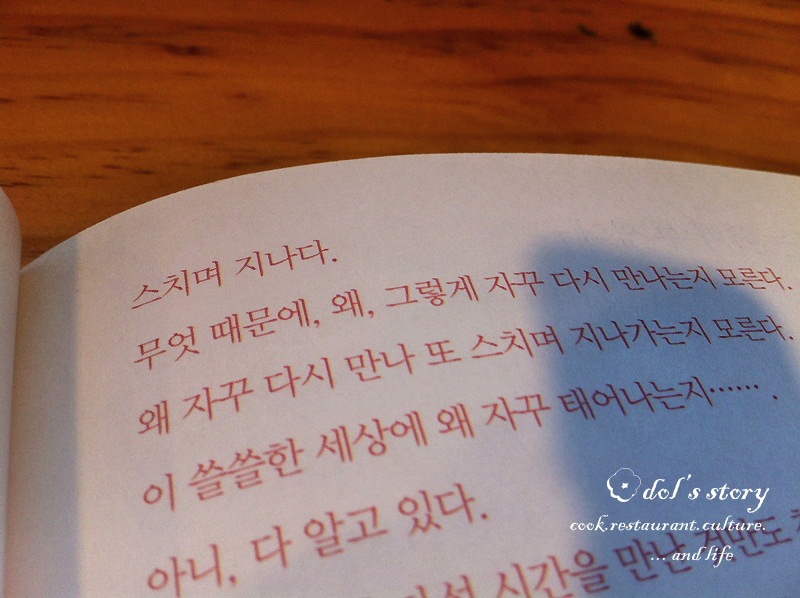 스치며 지나다.
무엇 때문에, 왜, 그렇게 자꾸 다시 만나는지 모른다.
왜 자꾸 다시 만나 또 스치며 지나가는지 모른다.
이 쓸쓸한 세상에 왜 자꾸 태어나는지…… .
아니, 다 알고 있다.
시간을 만난 것만도
dol's story
cook.restaurant.culture.
... and life